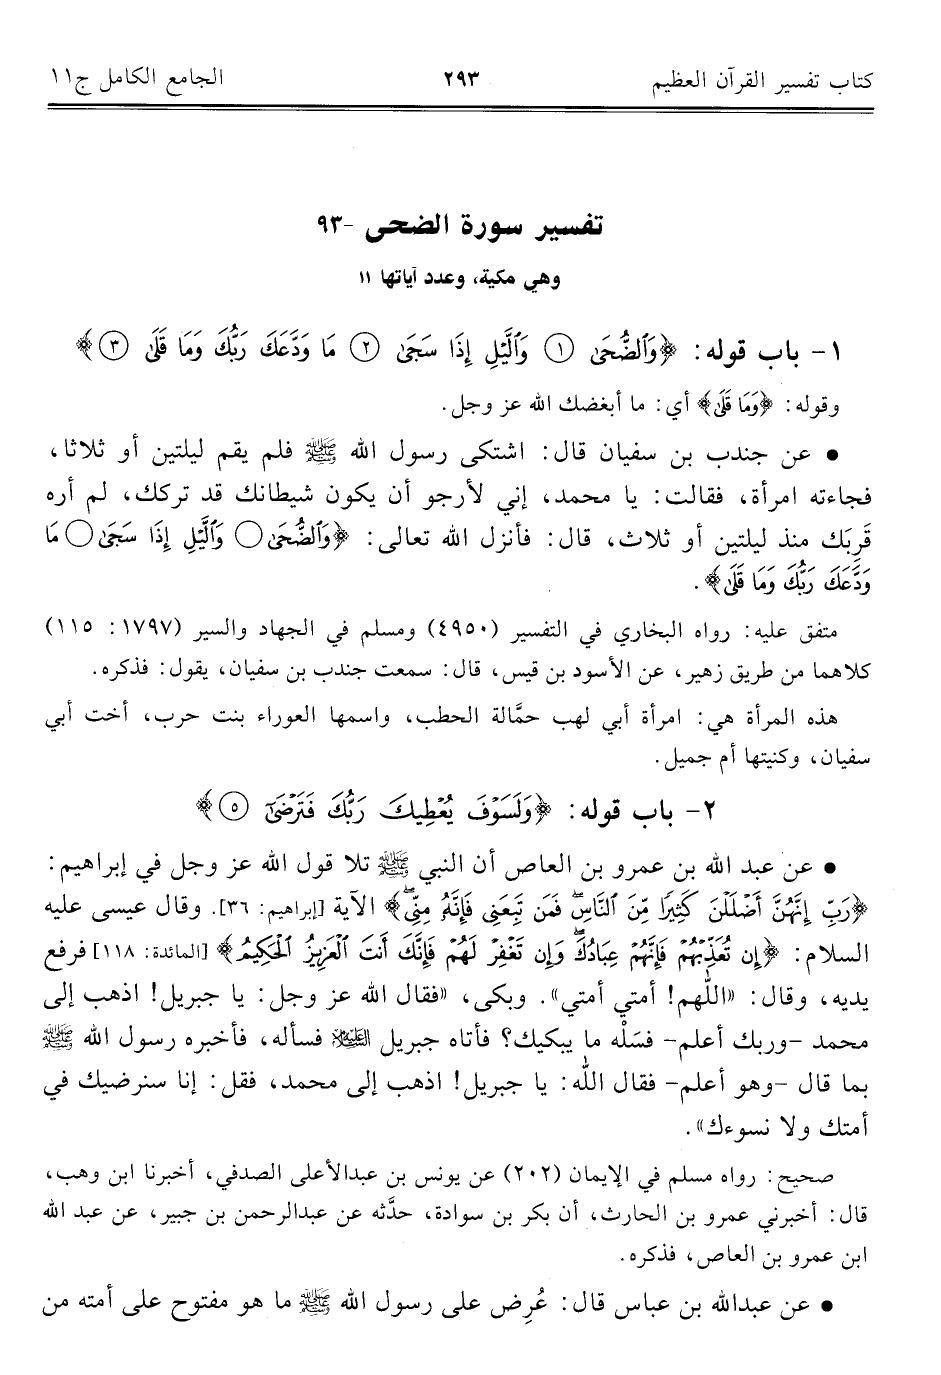 كتاب تفسير القرآن العظيم ٢٩٣ الجامع الكامل ج١١
تفسير سورة الضحى -٩٣
وهي مكية، وعدد آياتها ١١
١- باب قوله: ﴿وَٱلضُّحَىٰ ١ وَٱلَّيْلِ إِذَا سَجَىٰ ٢ مَا وَدَّعَكَ رَبُّكَ وَمَا قَلَىٰ ٣﴾
وقوله: ﴿وَمَا قَلَىٰ﴾ أي: ما أبغضك الله عز وجل.
● عن جندب بن سفيان قال: اشتكى رسول الله ﷺ فلم يقم ليلتين أو ثلاثا،
فجاءته امرأة، فقالت: يا محمد، إني لأرجو أن يكون شيطانك قد تركك، لم أره
قَرِبَك منذ ليلتين أو ثلاث، قال: فأنزل الله تعالى: ﴿وَٱلضُّحَىٰ ○ وَٱلَّيْلِ إِذَا سَجَىٰ ○ مَا
وَدَّعَكَ رَبُّكَ وَمَا قَلَىٰ﴾.
متفق عليه: رواه البخاري في التفسير (٤٩٥٠) ومسلم في الجهاد والسير (١٧٩٧: ١١٥)
كلاهما من طريق زهير، عن الأسود بن قيس، قال: سمعت جندب بن سفيان، يقول: فذكره.
هذه المرأة هي: امرأة أبي لهب حمَّالة الحطب، واسمها العوراء بنت حرب، أخت أبي
سفيان، وكنيتها أم جميل.
٢- باب قوله: ﴿وَلَسَوْفَ يُعْطِيكَ رَبُّكَ فَتَرْضَىٰٓ ٥﴾
● عن عبد الله بن عمرو بن العاص أن النبي ﷺ تلا قول الله عز وجل في إبراهيم:
﴿رَبِّ إِنَّهُنَّ أَضْلَلْنَ كَثِيرًا مِّنَ ٱلنَّاسِۖ فَمَن تَبِعَنِى فَإِنَّهُۥ مِنِّىۖ﴾ الآية [إبراهيم: ٣٦]. وقال عيسى عليه
السلام: ﴿إِن تُعَذِّبْهُمْ فَإِنَّهُمْ عِبَادُكَۖ وَإِن تَغْفِرْ لَهُمْ فَإِنَّكَ أَنتَ ٱلْعَزِيزُ ٱلْحَكِيمُ﴾ [المائدة: ١١٨] فرفع
يديه، وقال: «اللّٰهم! أمتي أمتي». وبكى، «فقال الله عز وجل: يا جبريل! اذهب إلى
محمد -وربك أعلم- فسَلْه ما يبكيك؟ فأتاه جبريل عليه السلام فسأله، فأخبره رسول الله ﷺ
بما قال -وهو أعلم- فقال اللّٰه: يا جبريل! اذهب إلى محمد، فقل: إنا سنرضيك في
أمتك ولا نسوءك».
صحيح: رواه مسلم في الإيمان (٢٠٢) عن يونس بن عبدالأعلى الصدفي، أخبرنا ابن وهب،
قال: أخبرني عمرو بن الحارث، أن بكر بن سوادة، حدَّثه عن عبدالرحمن بن جبير، عن عبد الله
ابن عمرو بن العاص، فذكره.
● عن عبدالله بن عباس قال: عُرِض على رسول الله ﷺ ما هو مفتوح على أمته من